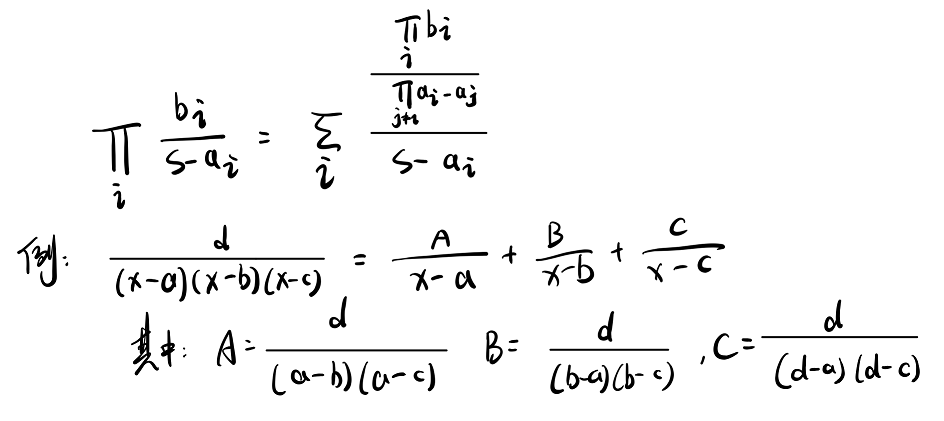 ∏_i b_i/(s-a_i) = ∑_i (∏_i b_i / ∏_{j≠i} a_i-a_j)/(s-a_i)
例: d/((x-a)(x-b)(x-c)) = A/(x-a) + B/(x-b) + C/(x-c)
其中: A= d/((a-b)(a-c)) B= d/((b-a)(b-c)) , C= d/((d-a)(d-c))